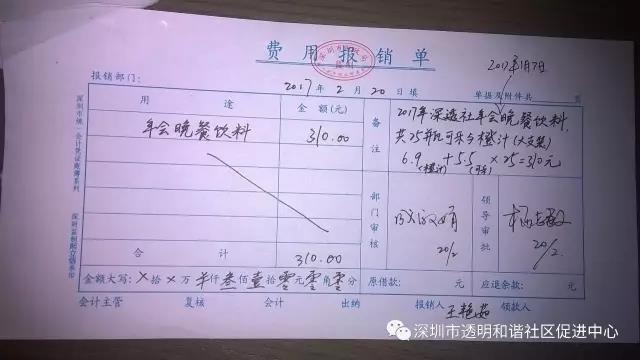 费用报销单
2017年1月7日
报销部门: 2017年2月20日填 单据及附件共 页
用途 金额(元) 备注
年会晚餐饮料 310.00
2017年深透社年会晚餐饮料,
共25瓶可乐与橙汁(大支装)
6.9 + 5.5 × 25=310元
(橙汁)
部门审核 领导审批
20/2 20/2
合计 310.00
金额大写: ×拾×万 仟叁佰壹拾零元零角零分 原借款: 元 应退余款: 元
会计主管 复核 会计 出纳 报销人 王艳茹 领款人
深圳市统一会计凭证账簿系列
深圳市透明和谐社区促进中心